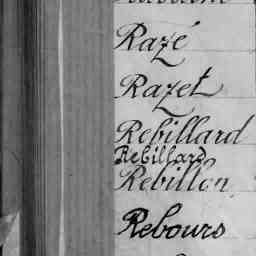 Razé
Razet
Rebillard
Rebillard
Rebillon
Rebours